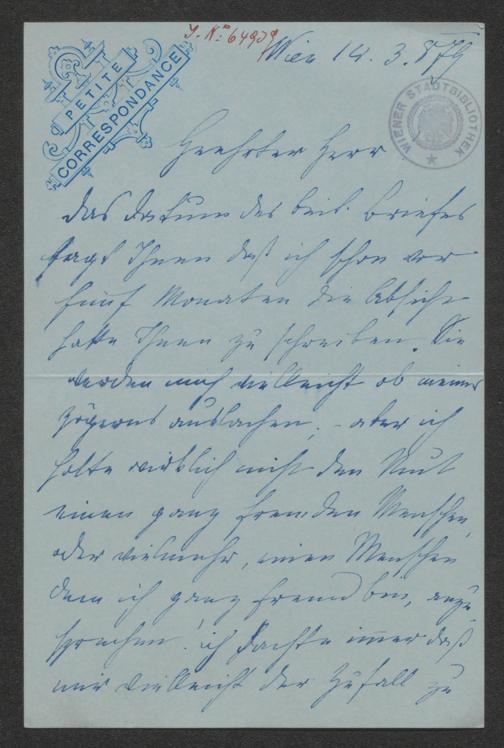 J. N.º 64939
Wien 14. 3. 879
PETITE
CORRESPONDANCE
WIENER STADTBIBLIOTHEK
Geehrter Herr
Das Datum des beil. Briefes
sagt Ihnen daß ich schon vor
fünf Monaten die Absicht
hatte Ihnen zu schreiben. Sie
werden mich vielleicht ob meines
Zögerns auslachen; - aber ich
hatte wirklich nicht den Mut
einen ganz fremden Menschen,
oder vielmehr, einen Menschen
dem ich ganz fremd bin, anzu
sprechen! ich dachte immer daß
mir vielleicht der Zufall zu